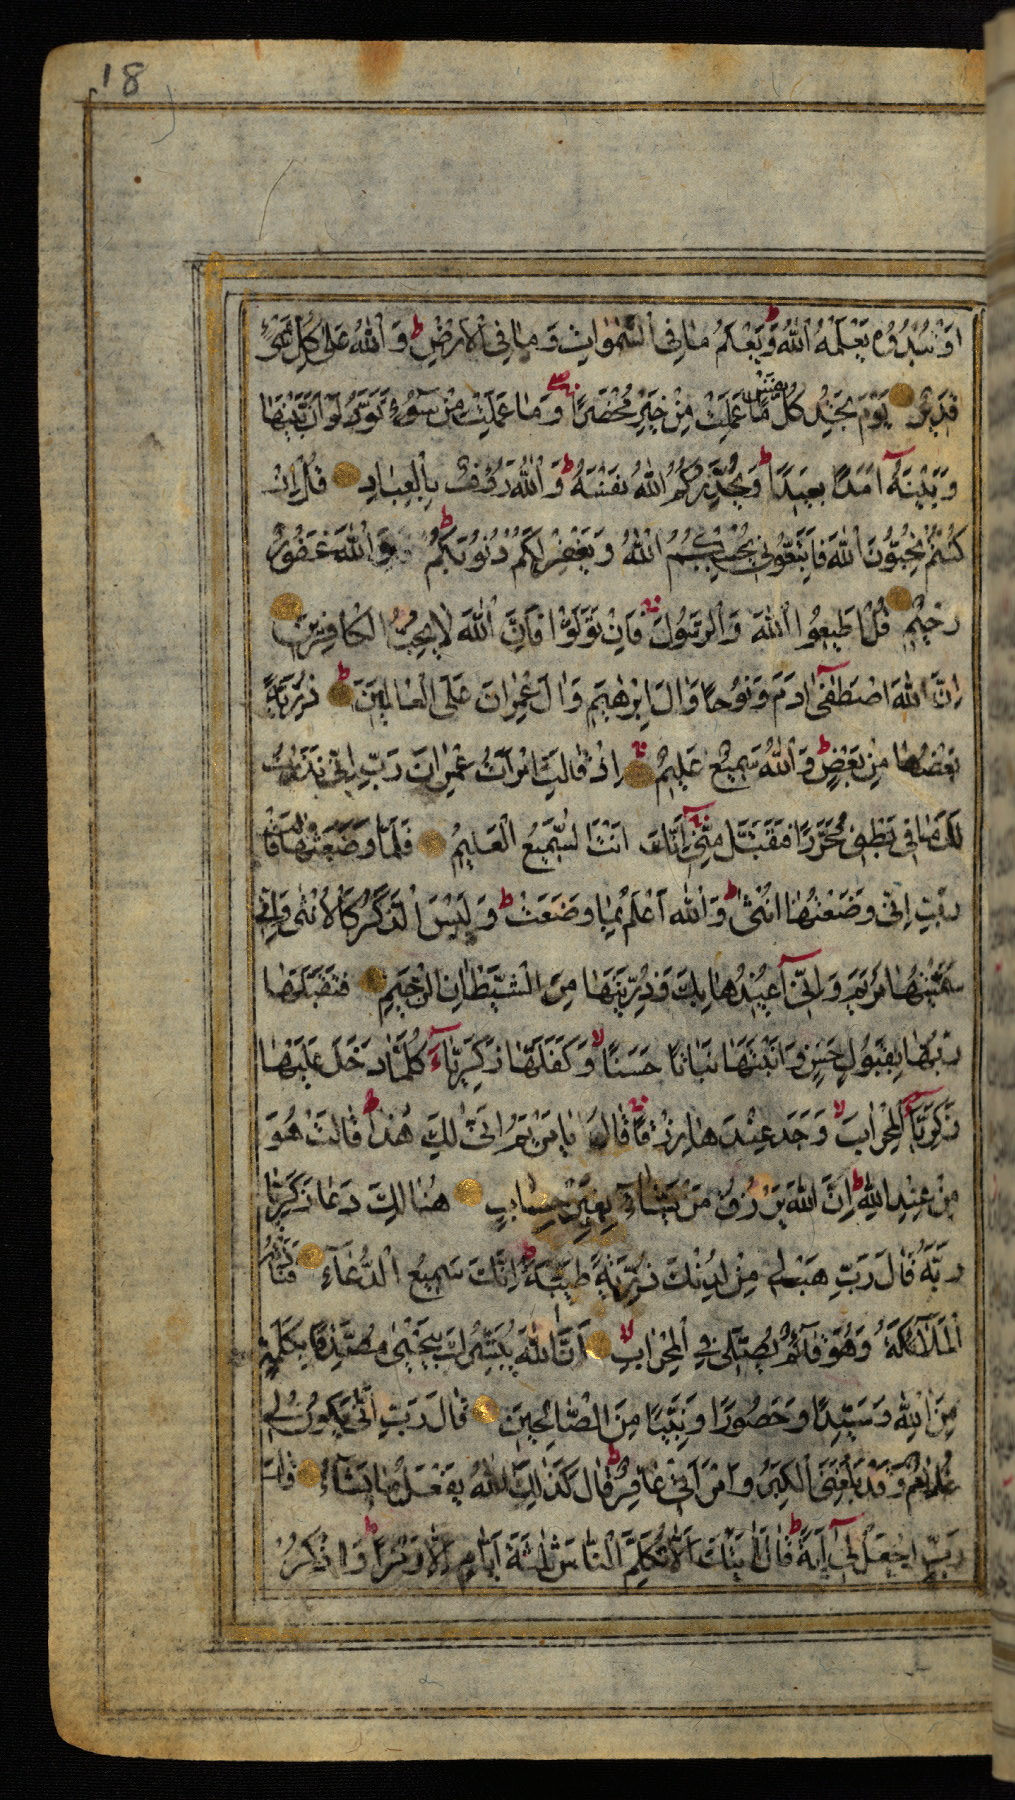 18
اَوْ تُبْدُوهُ يَعْلَمْهُ اللّٰهُ ط وَيَعْلَمُ مَا فِى السَّمٰوَاتِ وَمَا فِى الْاَرْضِ ط وَاللّٰهُ عَلٰى كُلِّ شَىْءٍ
قَدِيرٌ يَوْمَ تَجِدُ كُلُّ نَفْسٍ مَا عَمِلَتْ مِنْ خَيْرٍ مُحْضَرًا وَمَا عَمِلَتْ مِنْ سُوٓءٍ تَوَدُّ لَوْ اَنَّ بَيْنَهَا
وَبَيْنَهُٓ اَمَدًا بَعِيدًا ط وَيُحَذِّرُكُمُ اللّٰهُ نَفْسَهُ ط وَاللّٰهُ رَؤُفٌ بِالْعِبَادِ قُلْ اِنْ
كُنْتُمْ تُحِبُّونَ اللّٰهَ فَاتَّبِعُونِى يُحْبِبْكُمُ اللّٰهُ وَيَغْفِرْ لَكُمْ ذُنُوبَكُمْ ط وَاللّٰهُ غَفُورٌ
رَحِيمٌ قُلْ اَطِيعُوا اللّٰهَ وَالرَّسُولَ فَاِنْ تَوَلَّوْا فَاِنَّ اللّٰهَ لَا يُحِبُّ الْكَافِرِينَ
اِنَّ اللّٰهَ اصْطَفٰٓى اٰدَمَ وَنُوحًا وَاٰلَ اِبْرٰهِيمَ وَاٰلَ عِمْرٰانَ عَلَى الْعَالَمِينَ ط ذُرِّيَّةً
بَعْضُهَا مِنْ بَعْضٍ ط وَاللّٰهُ سَمِيعٌ عَلِيمٌ اِذْ قَالَتِ امْرَاَتُ عِمْرٰانَ رَبِّ اِنِّى نَذَرْتُ
لَكَ مَا فِى بَطْنِى مُحَرَّرًا فَتَقَبَّلْ مِنِّى اِنَّكَ اَنْتَ السَّمِيعُ الْعَلِيمُ فَلَمَّا وَضَعَتْهَا قَالَتْ
رَبِّ اِنِّى وَضَعْتُهَا اُنْثٰى ط وَاللّٰهُ اَعْلَمُ بِمَا وَضَعَتْ ط وَلَيْسَ الذَّكَرُ كَالْاُنْثٰى وَاِنِّى
سَمَّيْتُهَا مَرْيَمَ وَاِنِّىٓ اُعِيذُهَا بِكَ وَذُرِّيَّتَهَا مِنَ الشَّيْطَانِ الرَّجِيمِ فَتَقَبَّلَهَا
رَبُّهَا بِقَبُولٍ حَسَنٍ وَاَنْبَتَهَا نَبَاتًا حَسَنًا لا وَكَفَّلَهَا زَكَرِيَّاءَ كُلَّمَا دَخَلَ عَلَيْهَا
زَكَرِيَّا الْمِحْرَابَ لا وَجَدَ عِنْدَهَا رِزْقًا قَالَ يَا مَرْيَمُ اَنّٰى لَكِ هٰذَا ط قَالَتْ هُوَ
مِنْ عِنْدِ اللّٰهِ ط اِنَّ اللّٰهَ يَرْزُقُ مَنْ يَشَاءُ بِغَيْرِ حِسَابٍ هُنَالِكَ دَعَا زَكَرِيَّا
رَبَّهُ قَالَ رَبِّ هَبْ لِى مِنْ لَدُنْكَ ذُرِّيَّةً طَيِّبَةً ط اِنَّكَ سَمِيعُ الدُّعَآءِ فَنَادَتْهُ
الْمَلٰٓئِكَةُ وَهُوَ قَآئِمٌ يُصَلِّى فِى الْمِحْرَابِ لا اَنَّ اللّٰهَ يُبَشِّرُكَ بِيَحْيٰى مُصَدِّقًا بِكَلِمَةٍ
مِنَ اللّٰهِ وَسَيِّدًا وَحَصُورًا وَنَبِيًّا مِنَ الصَّالِحِينَ قَالَ رَبِّ اَنّٰى يَكُونُ لِى
غُلَامٌ وَقَدْ بَلَغَنِىَ الْكِبَرُ وَامْرَاَتِى عَاقِرٌ ط قَالَ كَذٰلِكَ اللّٰهُ يَفْعَلُ مَا يَشَآءُ قَالَ
رَبِّ اجْعَلْ لِىٓ اٰيَةً ط قَالَ اٰيَتُكَ اَلَّا تُكَلِّمَ النَّاسَ ثَلٰثَةَ اَيَّامٍ اِلَّا رَمْزًا ط وَاذْكُرْ